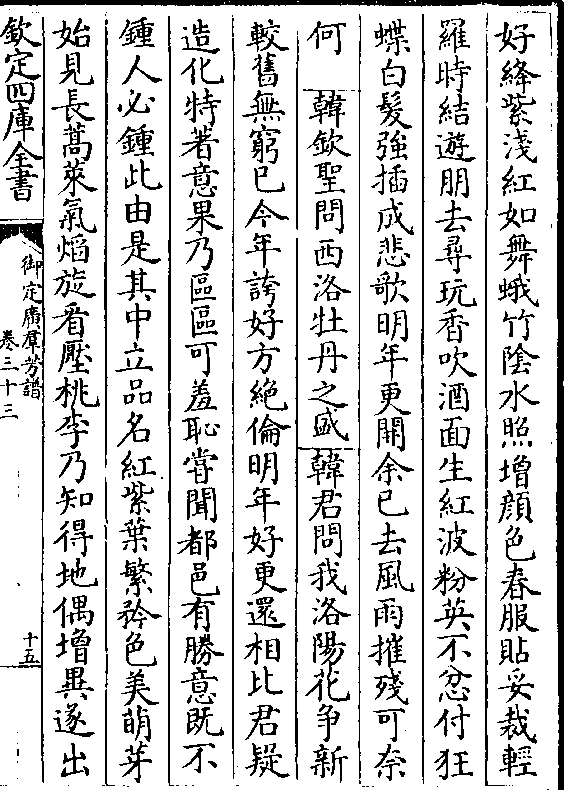 好絳紫淺紅如舞蛾竹陰水照增顔色春服貼妥裁輕
羅時結遊朋去尋玩香吹酒面生紅波粉英不忿付狂
蝶白髪強插成悲歌明年更開余已去風雨摧殘可奈
何　韓欽聖問西洛牡丹之盛　韓君問我洛陽花争新
較舊無窮已今年誇好方絶倫明年好更還相比君疑
造化特著意果乃區區可羞恥嘗聞都邑有勝意既不
鍾人必鍾此由是其中立品名紅紫葉繁矜色美萌芽
始見長蒿萊氣熖旋看壓桃李乃知得地偶増異遂出
欽定四庫全書
御定廣羣芳譜
卷三十三
十五